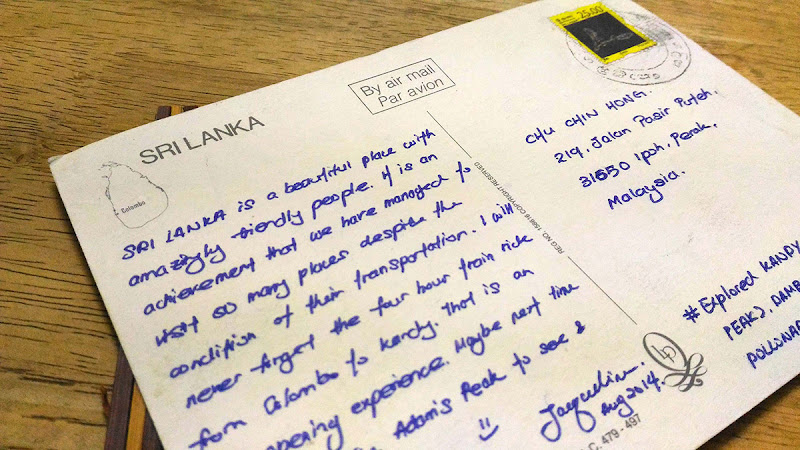 SRI LANKA
Colombo
By air mail
Par avion
25.00
SRI LANKA is a beautiful place with
amazingly friendly people. It is an
achievement that we have managed to
visit so many places despite the
condition of their transportation. I will
never forget the four hour train ride
from Colombo to Kandy. That is an
experience. Maybe next time
Adam's Peak to see &
Jacqueline.
Aug 2014.
REG NO. COPYRIGHT RESERVED
CHU CHIN HONG.
219, Jalan Pasir Puteh,
31650 Ipoh, Perak,
Malaysia.
#Explored KANDY
PEAK),
lp
C. 479 - 497